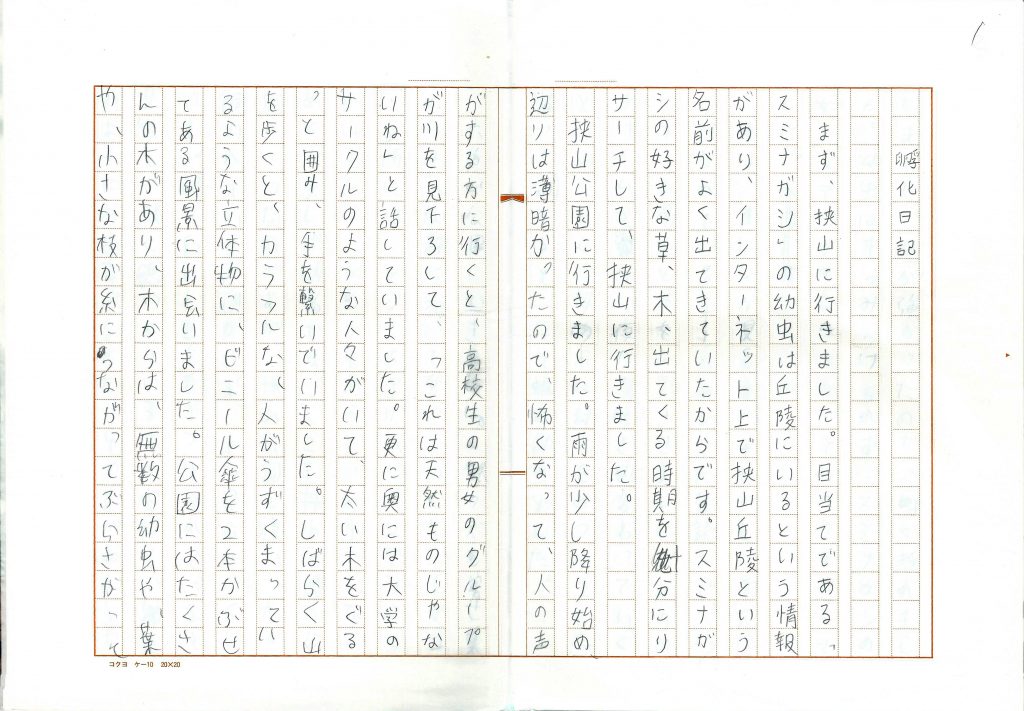 1
孵化日記
まず、挟山に行きました。目当てである「
スミナガシ」の幼虫は丘陵にいるという情報
があり、インターネット上で挟山丘陵という
名前がよく出てきていたからです。スミナガ
シの好きな草、木、出てくる時期を分にリ
サーチして、挟山に行きました。
挟山公園に行きました。雨が少し降り始め
辺りは薄暗かったので、怖くなって、人の声
がする方に行くと、高校生の男女のグループ
が川を見下ろして、「これは天然ものじゃな
いね」と話していました。更に奥には大学の
サークルのような人々がいて、太い木をぐる
っと囲み、手を繋いでいました。しばらく山
を歩くと、カラフルな、人がうずくまってい
るような立体物に、ビニール傘を2本かぶせ
てある風景に出会いました。公園にはたくさ
んの木があり、木からは、無数の幼虫や、葉
や、小さな枝が糸につながってぶらさがって
コクヨ ケー10 20×20